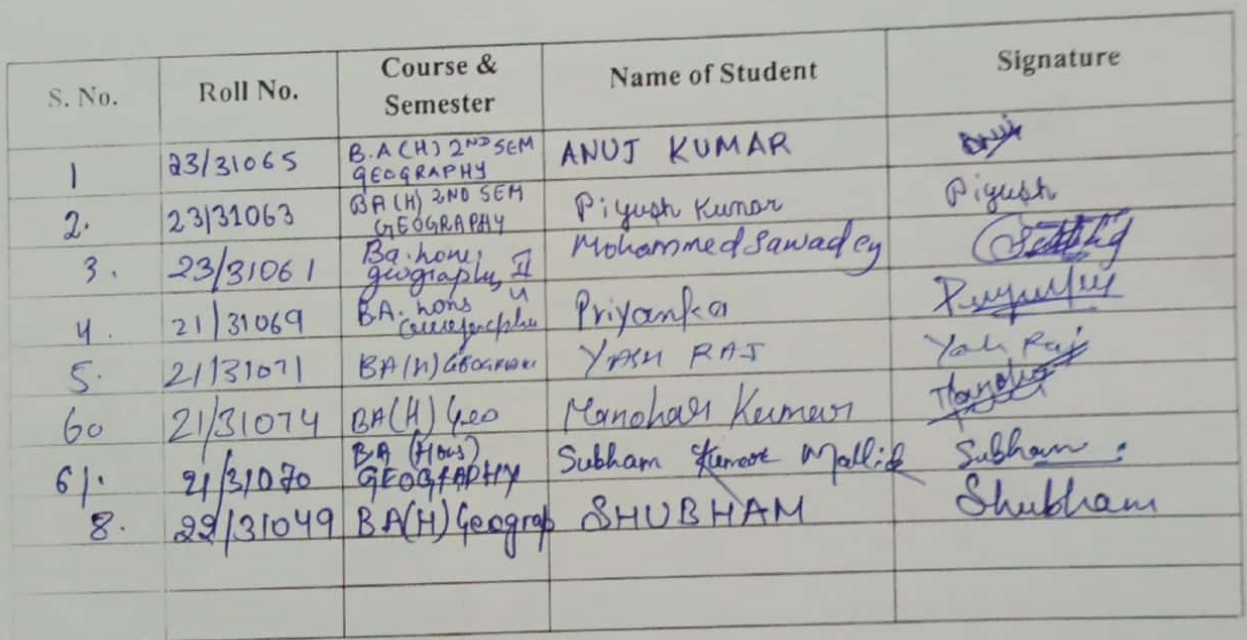 S. No. Roll No. Course & Semester Name of Student Signature
1 23/31065 B.A (H) 2ND SEM GEOGRAPHY ANUJ KUMAR Anuj
2. 23/31063 BA (H) 2ND SEM GEOGRAPHY Piyush Kumar Piyush
3. 23/31061 Ba. hons geography II Mohammed Sawadey
4. 21/31069 BA. hons Priyanka
5. 21/31071 BA(H) YASH RAJ Yash Raj
6. 21/31074 BA(H) Geo Manohar Kumar Manohar
6/. 21/31070 BA (Hons) GEOGRAPHY Subham Kumar Mallick Subham
8. 22/31049 BA(H) Geograp SHUBHAM Shubham